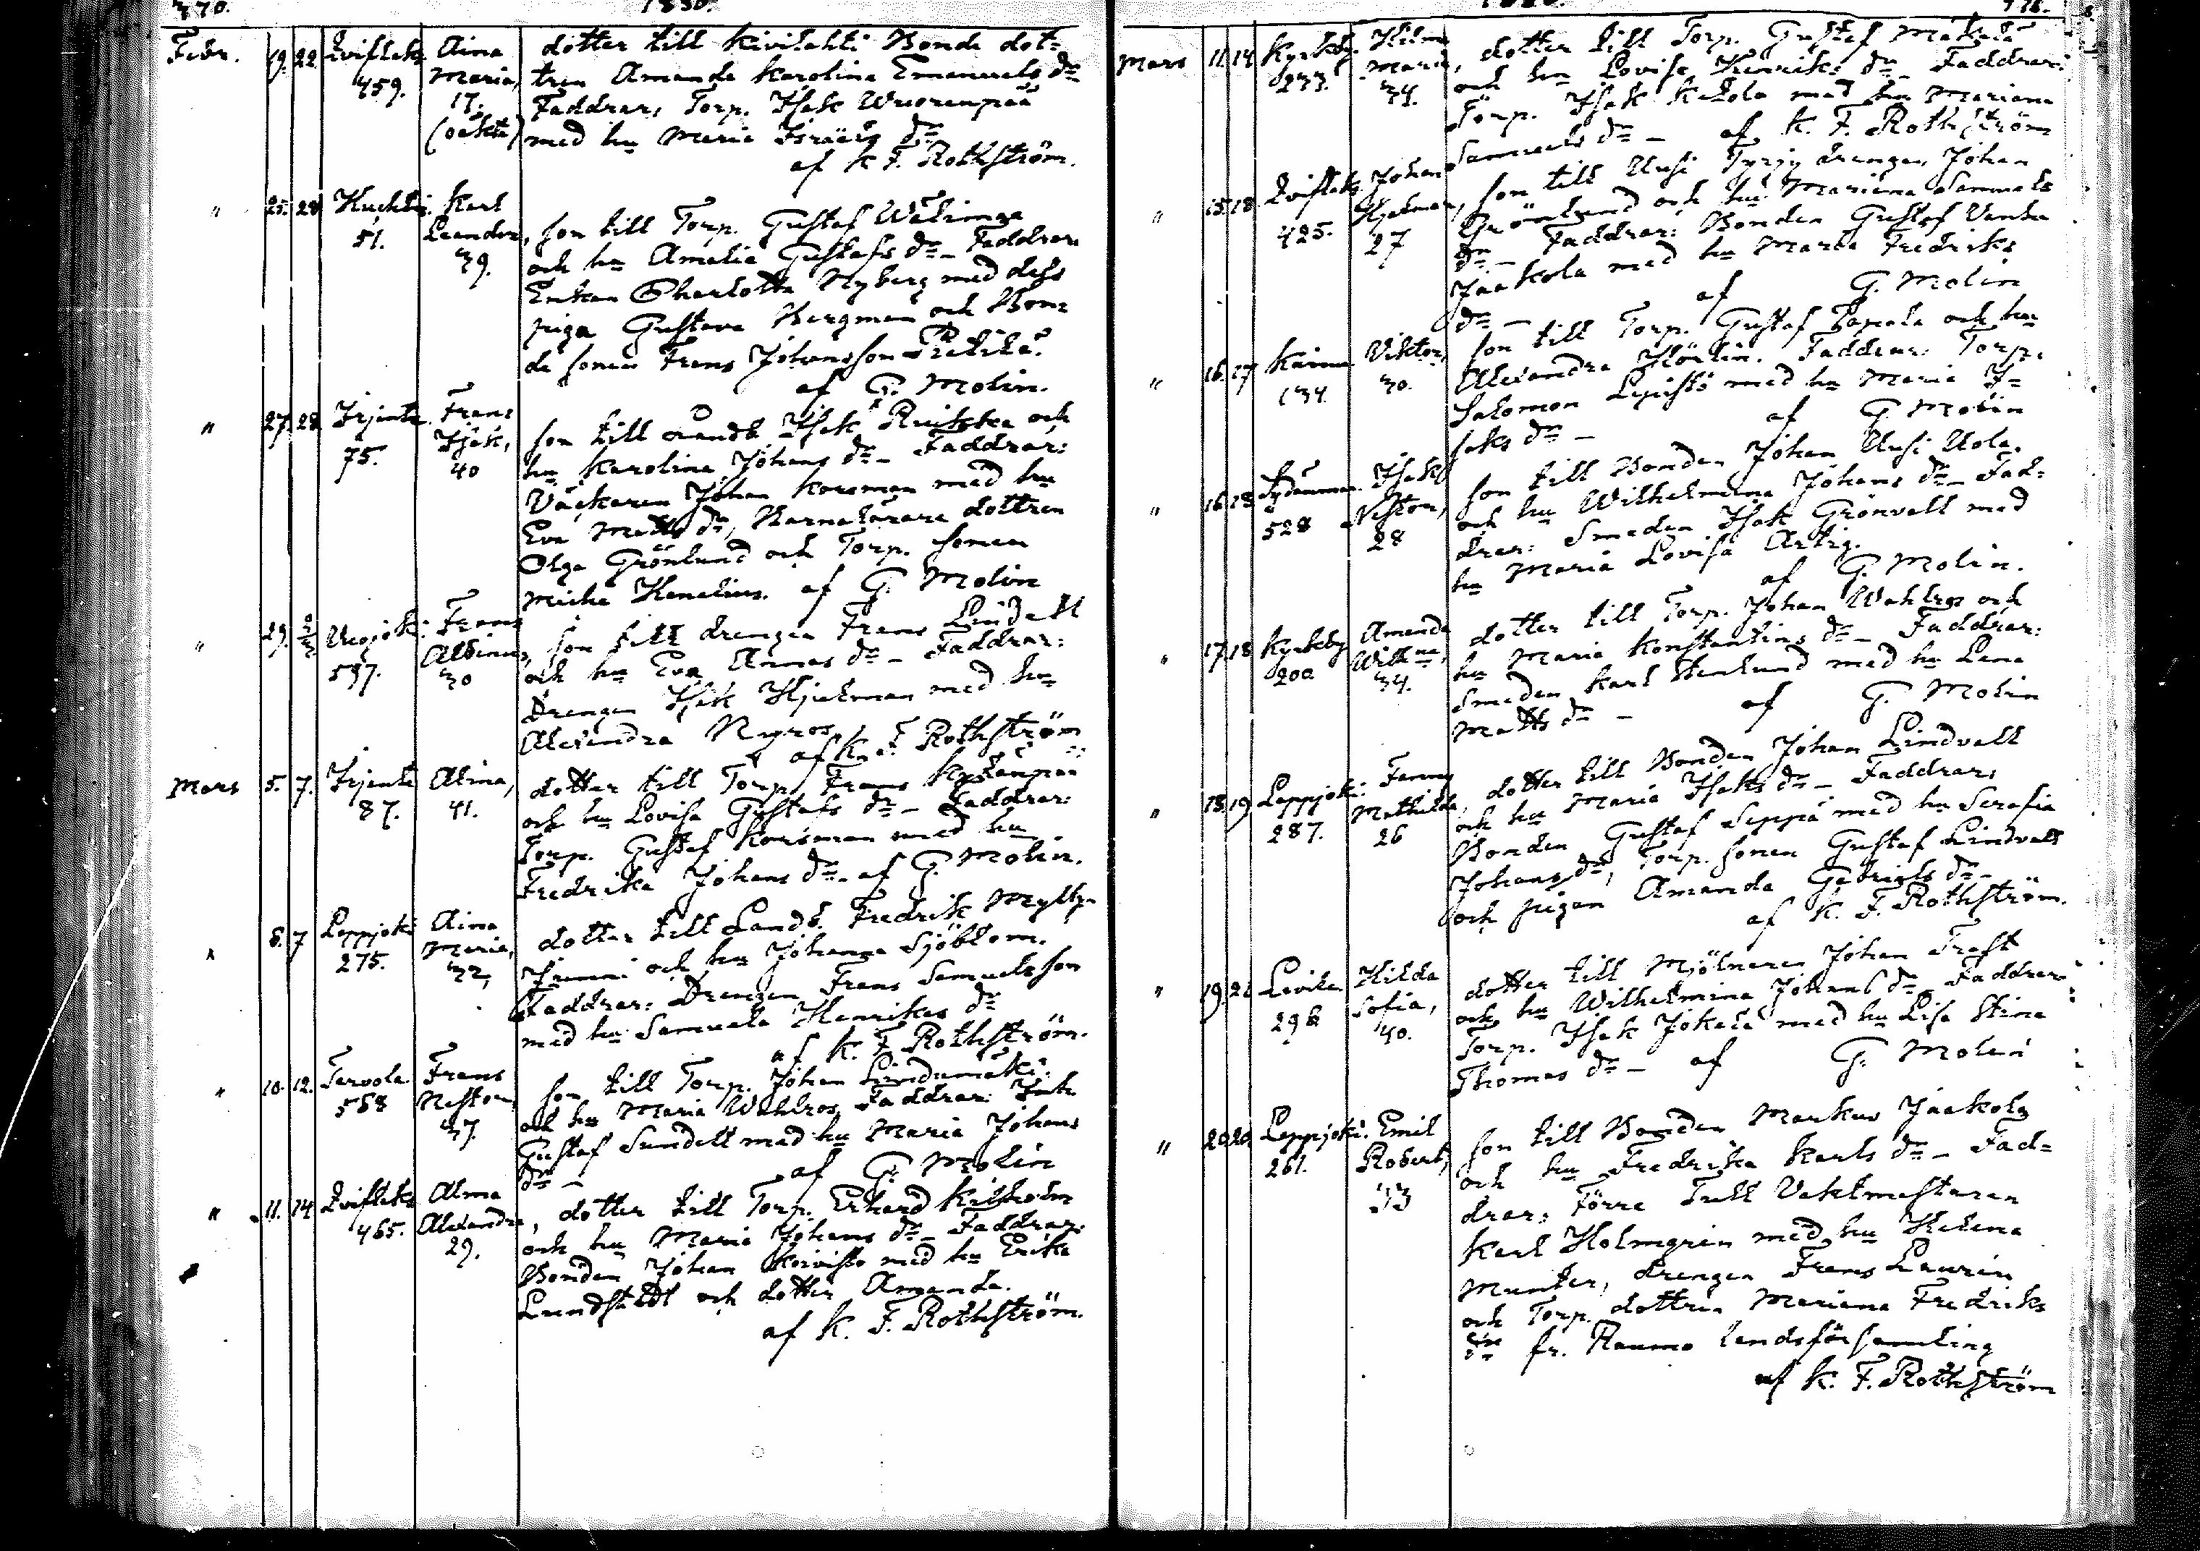 Febr. 19. 22. Qvistlaks 459. Aina Maria, 17. (oäkta) dotter till Kivilahti Bonde dot-
tren Amanda Karolina Emanuels dr
Faddrar, Torp. Isak Wuorenpää
med hu Maria Israels dr
af K. F. Rothström.
" 25. 28 51. Karl Leander, 39. son till Torp. Gustaf
och hu Amalia Gustafs dr – Faddrar
Enkan Charlotta Nyberg med dess
piga Gustava Bergman och Bon-
de sonen Frans Johansson
af G. Molin.
" 27. 28 Irjanta 75. Frans Isak, 40 son till Landb. Isak och
hu Karolina Johans dr – Faddrar:
Johan Korsman med hu
Eva Matts dr, dottren
Olga Grönlund och Torp. sonen
af G. Molin
" 29. 597. Frans Albinus, 30 son till drengen Frans Lindell
och hu Eva Annas dr – Faddrar:
Drengen Isak Hjelman med hu
Alexandra Nyroos,
af K. F. Rothström
Mars 5. 7. Irjanta 87. Alina, 41. dotter till Torp. Frans
och hu Lovisa Gustafs dr – Faddrar:
Torp. Gustaf Korsman med hu
Fredrika Johans dr – af G. Molin.
" 6. 7 Leppjoki 275. Aina Maria, 32, dotter till Landb. Fredrik Mylly-
och hu Johanna Sjöblom.
Faddrar: Drengen Frans Samuelsson
med hu Samuela Henriks dr
af K. F. Rothström.
" 10. 12. Tarvola 558 Frans Nestor, 37. son till Torp. Johan Lindumäki
och hu Maria Wahlroos, Faddrar: Inh
Gustaf Sundell med hu Maria Johans
dr – af G. Molin
" 11. 14 Qvistlaks 465. Alma Alexandra, 29. dotter till Torp. Erhard
och hu Maria Johans dr – Faddrar:
Bonden Johan Koivisto med hu Erika
Lundstedt och dotter Amanda.
af K. F. Rothström.
Mars 11. 14 Kyrkby. 233. Hilma Maria, 34. dotter till Torp. Gustaf
och hu Lovisa Henriks dr – Faddrar:
Torp. Isak Ketola med hu Mariana
Samuels dr – af K. F. Rothström
" 15. 18 Qvistlaks 425. Johan Hjalmar, 27 son till Uusi Tyrjy drengen Johan
Grönlund och hu Mariana Samuels
dr – Faddrar: Bonden Gustaf Vanha
Jaakola med hu Maria Fredriks
dr – af G. Molin
" 16. 17 134. Viktor, 30. son till Torp. Gustaf Papola och hu
Alexandra Faddrar: Torp.
Salomon Lepistö med hu Maria I-
saks dr – af G. Molin
" 16. 18 Sydänmaa 528 Isak Nestor, 28 son till Bonden Johan Uusi Uola
och hu Wilhelmina Johans dr – Fad-
drar: Smeden Isak Grönvall med
hu Maria Lovisa
af G. Molin.
" 17. 18 Kyrkby 200 Amanda Wilhna, 34. dotter till Torp. Johan Wahlros och
hu Maria Konstantins dr – Faddrar:
Smeden Karl Stenlund med hu Lena
Matts dr – af G. Molin
" 18. 19. Leppjoki 287. Fanny Mathilda, 26 dotter till Bonden Johan Lindvall
och hu Maria Isaks dr – Faddrar:
Bonden Gustaf Seppä med hu Serafia
Johans dr, Torp. sonen Gustaf Lindvall
och pigan Amanda Gabriels dr –
af K. F. Rothström.
" 19. 21 296 Hilda Sofia, 40. dotter till Mjölnaren Johan Frast
och hu Wilhelmina Johans dr – Faddrar
Torp. Isak Jokela med hu Lisa Stina
Thomas dr – af G. Molin
" 20. 20. Leppjoki 261. Emil Robert, 33 son till Bonden Markus Jaakola
och hu Fredrika Karls dr – Fad-
drar: Förre Tull Vaktmästaren
Karl Holmgren med hu Helena
Munter, drengen Frans Laurin
och Torp. dottren Mariana Fredriks
dr fr. Raumo landsförsamling
af K. F. Rothström